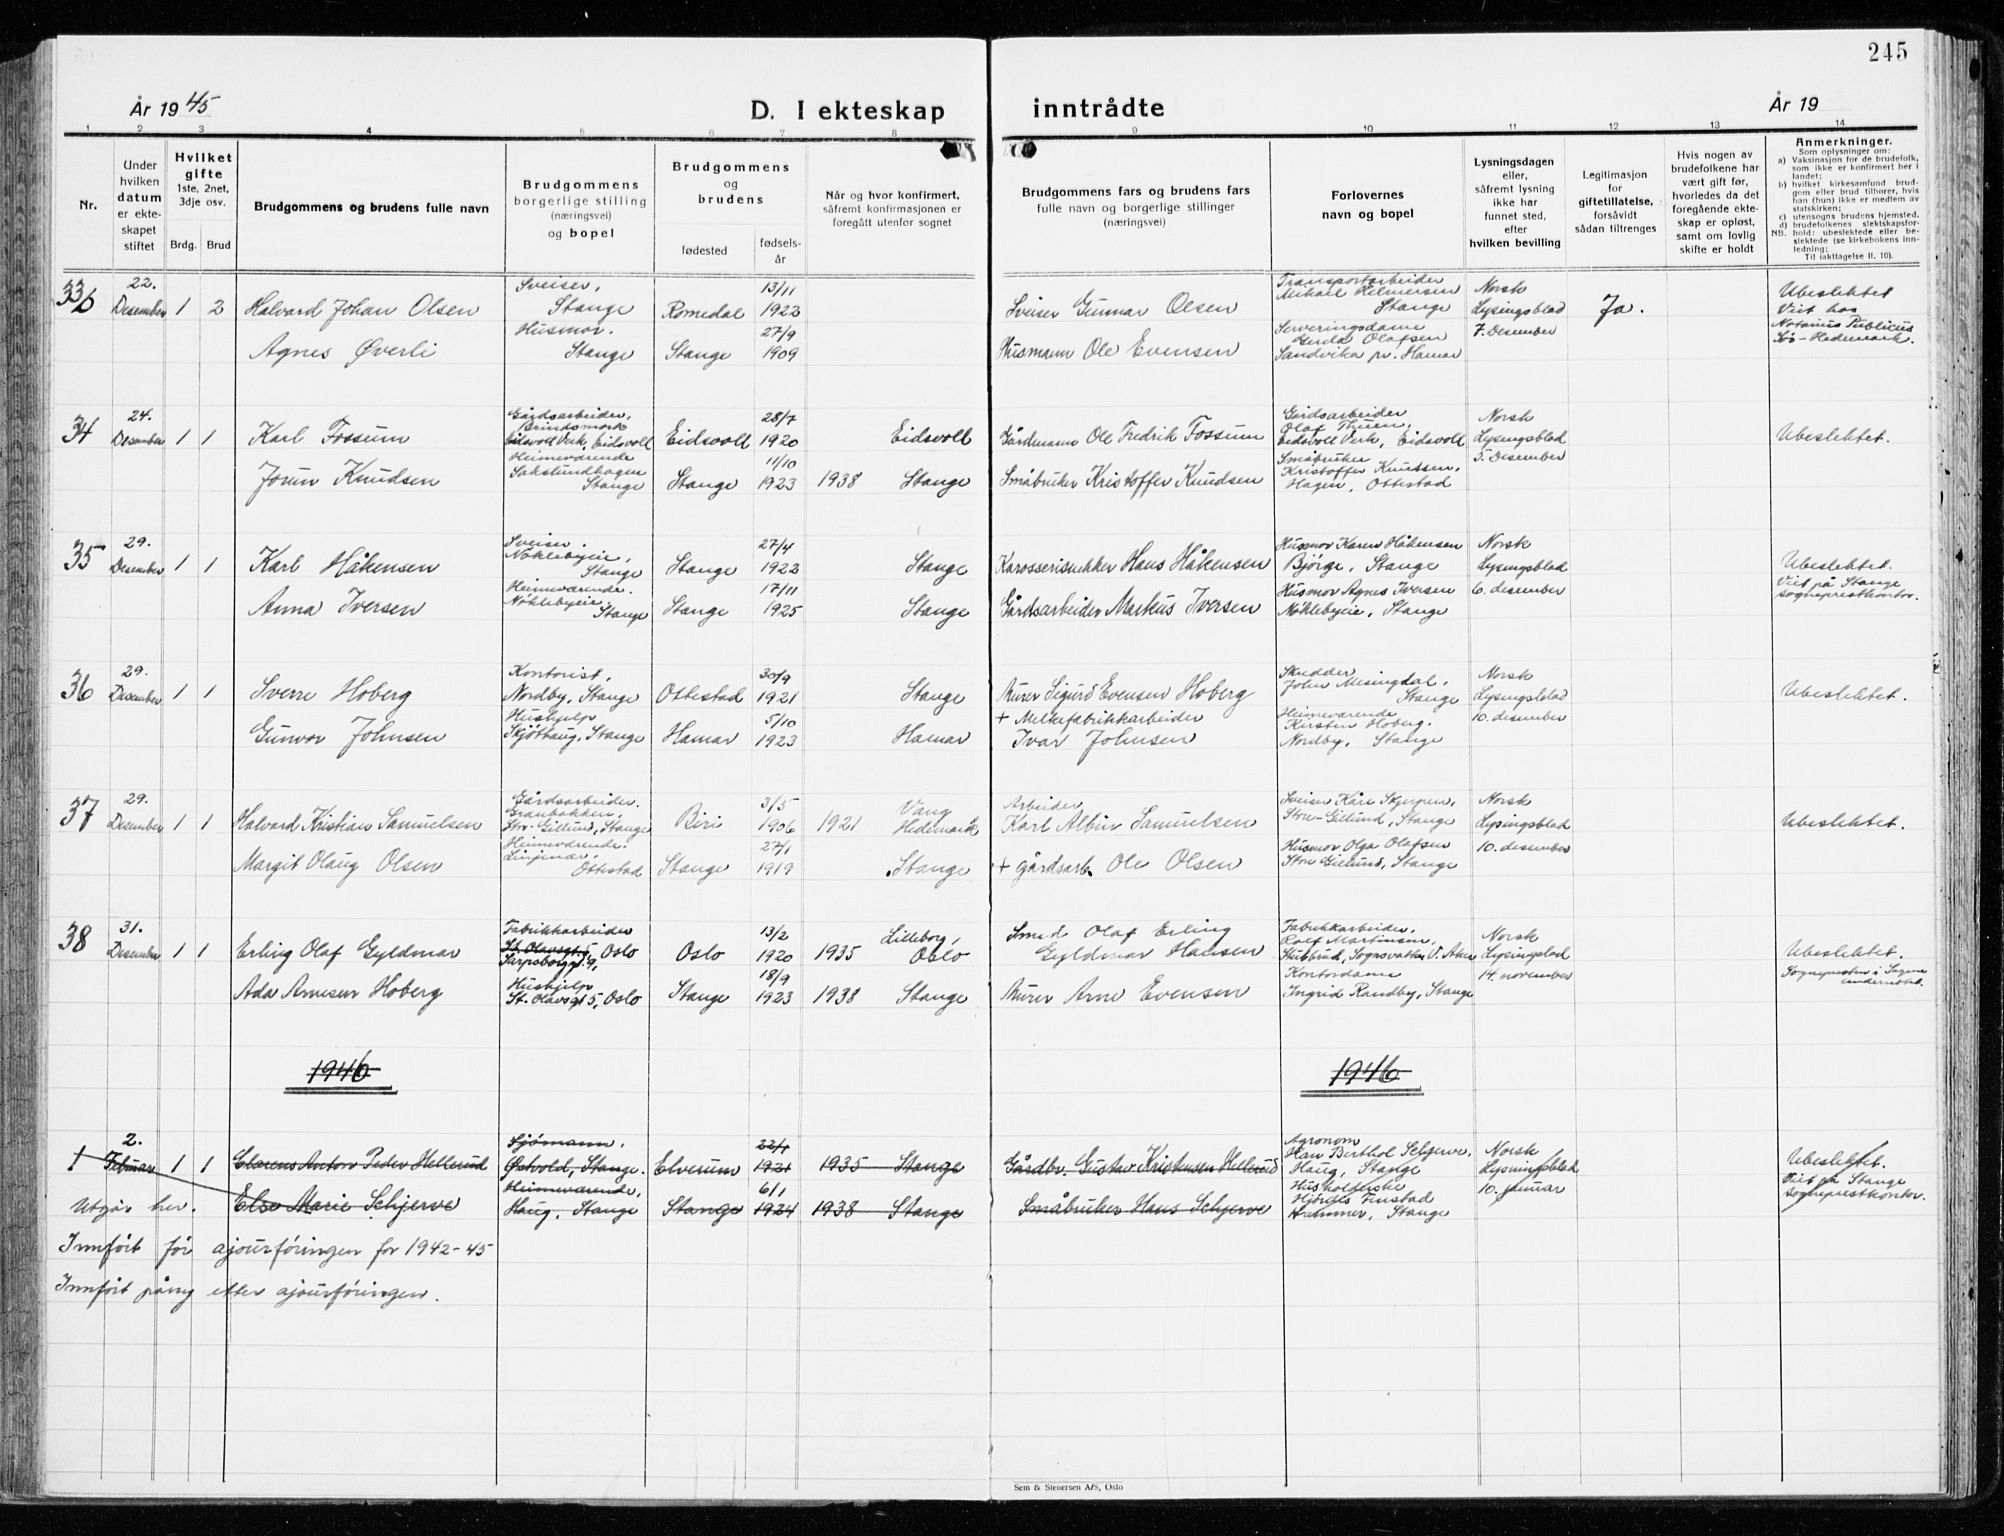 245
År 1945
D. I ekteskap inntrådte
År 19
1 2 3 4 5 6 7 8 9 10 11 12 13 14
Nr.
Under
hvilken
datum
er ekte-
skapet
stiftet
Hvilket
gifte
1ste, 2net,
3dje osv.
Brdg. Brud
Brudgommens og brudens fulle navn
Brudgommens
borgerlige stilling
(næringsvei)
og bopel
Brudgommens
og
brudens
fødested
fødsels-
år
Når og hvor konfirmert,
såfremt konfirmasjonen er
foregått utenfor sognet
Brudgommens fars og brudens fars
fulle navn og borgerlige stillinger
(næringsvei)
Forlovernes
navn og bopel
Lysningsdagen
eller,
såfremt lysning
ikke har
funnet sted,
efter
hvilken bevilling
Legitimasjon
for
giftetillatelse,
forsåvidt
sådan tiltrenges
Hvis nogen av
brudefolkene har
vært gift før,
hvorledes da det
foregående ekte-
skap er opløst,
samt om lovlig
skifte er holdt
Anmerkninger.
Som oplysninger om:
a) Vaksinasjon for de brudefolk,
som ikke er konfirmert her i
landet;
b) hvilket kirkesamfund brud-
gom eller brud tilhører, hvis
han (hun) ikke er medlem av
statskirken;
c) utensogns brudens hjemsted.
d) brudefolkenes slektskapsfor-
NB. hold: ubeslektede eller be-
slektede (se kirkebokens inn-
ledning;
Til iakttagelse II. 10).
33b
22.
Desember
1 2
Halvard Johan Olsen
Agnes Øverli
Sveiser,
Stange
Husmor.
Stange
Romedal
Stange
13/11
1922
27/9
1909
Sveiser Gunnar Olsen
Husmann Ole Evensen
Transportarbeider
Mikael Helmersen
Stange
Serveringsdame
Gerda Olafsen
Sandvika pr. Hamar
Norsk
Lysingsblad
7. Desember
Ja.
Ubeslektet
Viet hos
Notarius Publicus
Sør-Hedemark.
34
24.
Desember
1 1
Karl Fossum
Jorun Knudsen
Gårdsarbeider,
Eidsvoll Verk, Eidsvoll
Heimeværende
Sakslundhagen
Stange
Eidsvoll
Stange
28/7
1920
11/10
1923
Eidsvoll
1938 Stange
Gårdmann Ole Fredrik Fossum
Småbruker Kristoffer Knudsen
Gårdsarbeider
Olaf Thuen,
Eidsvoll Verk, Eidsvoll
Småbruker
Kristoffer Knutsen,
Hagen, Ottestad
Norsk
Lysingsblad
5. Desember
Ubeslektet.
35
29.
Desember
1 1
Karl Håkensen
Anna Iversen
Sveiser.
Nøklebyeie,
Stange
Heimeværende.
Nøklebyeie,
Stange
Stange
Stange
27/4
1922
17/11
1925
Stange
Stange
Karosserisnekker Hans Håkensen
Gårdsarbeider Markus Iversen
Husmor Karen Håkensen
Bjørge, Stange
Husmor Agnes Iversen
Nøklebyeie, Stange
Norsk
Lysingsblad
6. desember
Ubeslektet.
Viet på Stange
sogneprestkontor.
36
29.
Desember
1 1
Sverre Hoberg
Gunvor Johnsen
Kontorist,
Nordby, Stange
Hushjelp
Skjøthaug, Stange
Ottestad
Hamar
30/9
1921
5/10
1923
Stange
Hamar
Murer Sigurd Evensen Hoberg
+ Melkefabrikkarbeider
Ivar Johnsen
Skredder
John Mesingdal,
Stange
Heimeværende
Kirsten Hoberg.
Nordby, Stange
Norsk
Lysingsblad
10. desember
Ubeslektet.
37
29.
Desember
1 1
Halvard Kristian Samuelsen
Margit Olaug Olsen
Gårdsarbeider.
Granbakken,
Stor-Gillund, Stange
Heimeværende.
Linjenær,
Ottestad
Biri
Stange
3/5
1906
27/1
1919
1921
Vang
Hedemark
Stange
Arbeider
Karl Albin Samuelsen
+ gårdsarb. Ole Olsen
Sveiser Kåre Skjerpen,
Store-Gillund, Stange
Husmor Olga Olafsen
Store Gillund, Stange
Norsk
Lysingsblad
10. desember
Ubeslektet.
38
31.
Desember
1 1
Erling Olaf Gyldmar
Ada Arnesen Hoberg
Fabrikkarbeider
St. Olavsgt. 5, Oslo
Sarpsborggt. 9,
Hushjelp
St. Olavsgt 5, Oslo
Oslo
Stange
13/2
1920
18/9
1923
1935
Lilleborg,
Oslo
1938 Stange
Smed Olaf Erling
Gyldmar Hansen
Murer Arne Evensen
Fabrikkarbeider,
Rolf Martinsen,
Stubbrud, Sognsvatn, V. Aker
Kontordame
Ingrid Randby, Stange
Norsk
Lysingsblad
14. november
Ubeslektet.
Sognepresten i Sagene
underrettet.
1946
1946
1
2.
Februar
1 1
Clarens Anton Peder Hellerud
Else Marie Schjerve
Sjømann.
Østvold, Stange.
Heimeværende,
Haug, Stange
Elverum
Stange
22/4
1921
6/1
1924
1935 Stange
1938 Stange
Gårdbr. Gustav Kristensen Hellerud
Småbruker Hans Schjerve
Agronom
Han Berthol Schjerve,
Haug, Stange
Husholderske
Hjørdis Finstad
Hammer, Stange
Norsk
Lysningsblad
10. januar
Ubeslektet.
Viet på Stange
sogneprestkontor.
Utgår her.
Innført før ajourføringen for 1942-45
Innført påny etter ajourføringen.
Sem & Stenersen A/S, Oslo